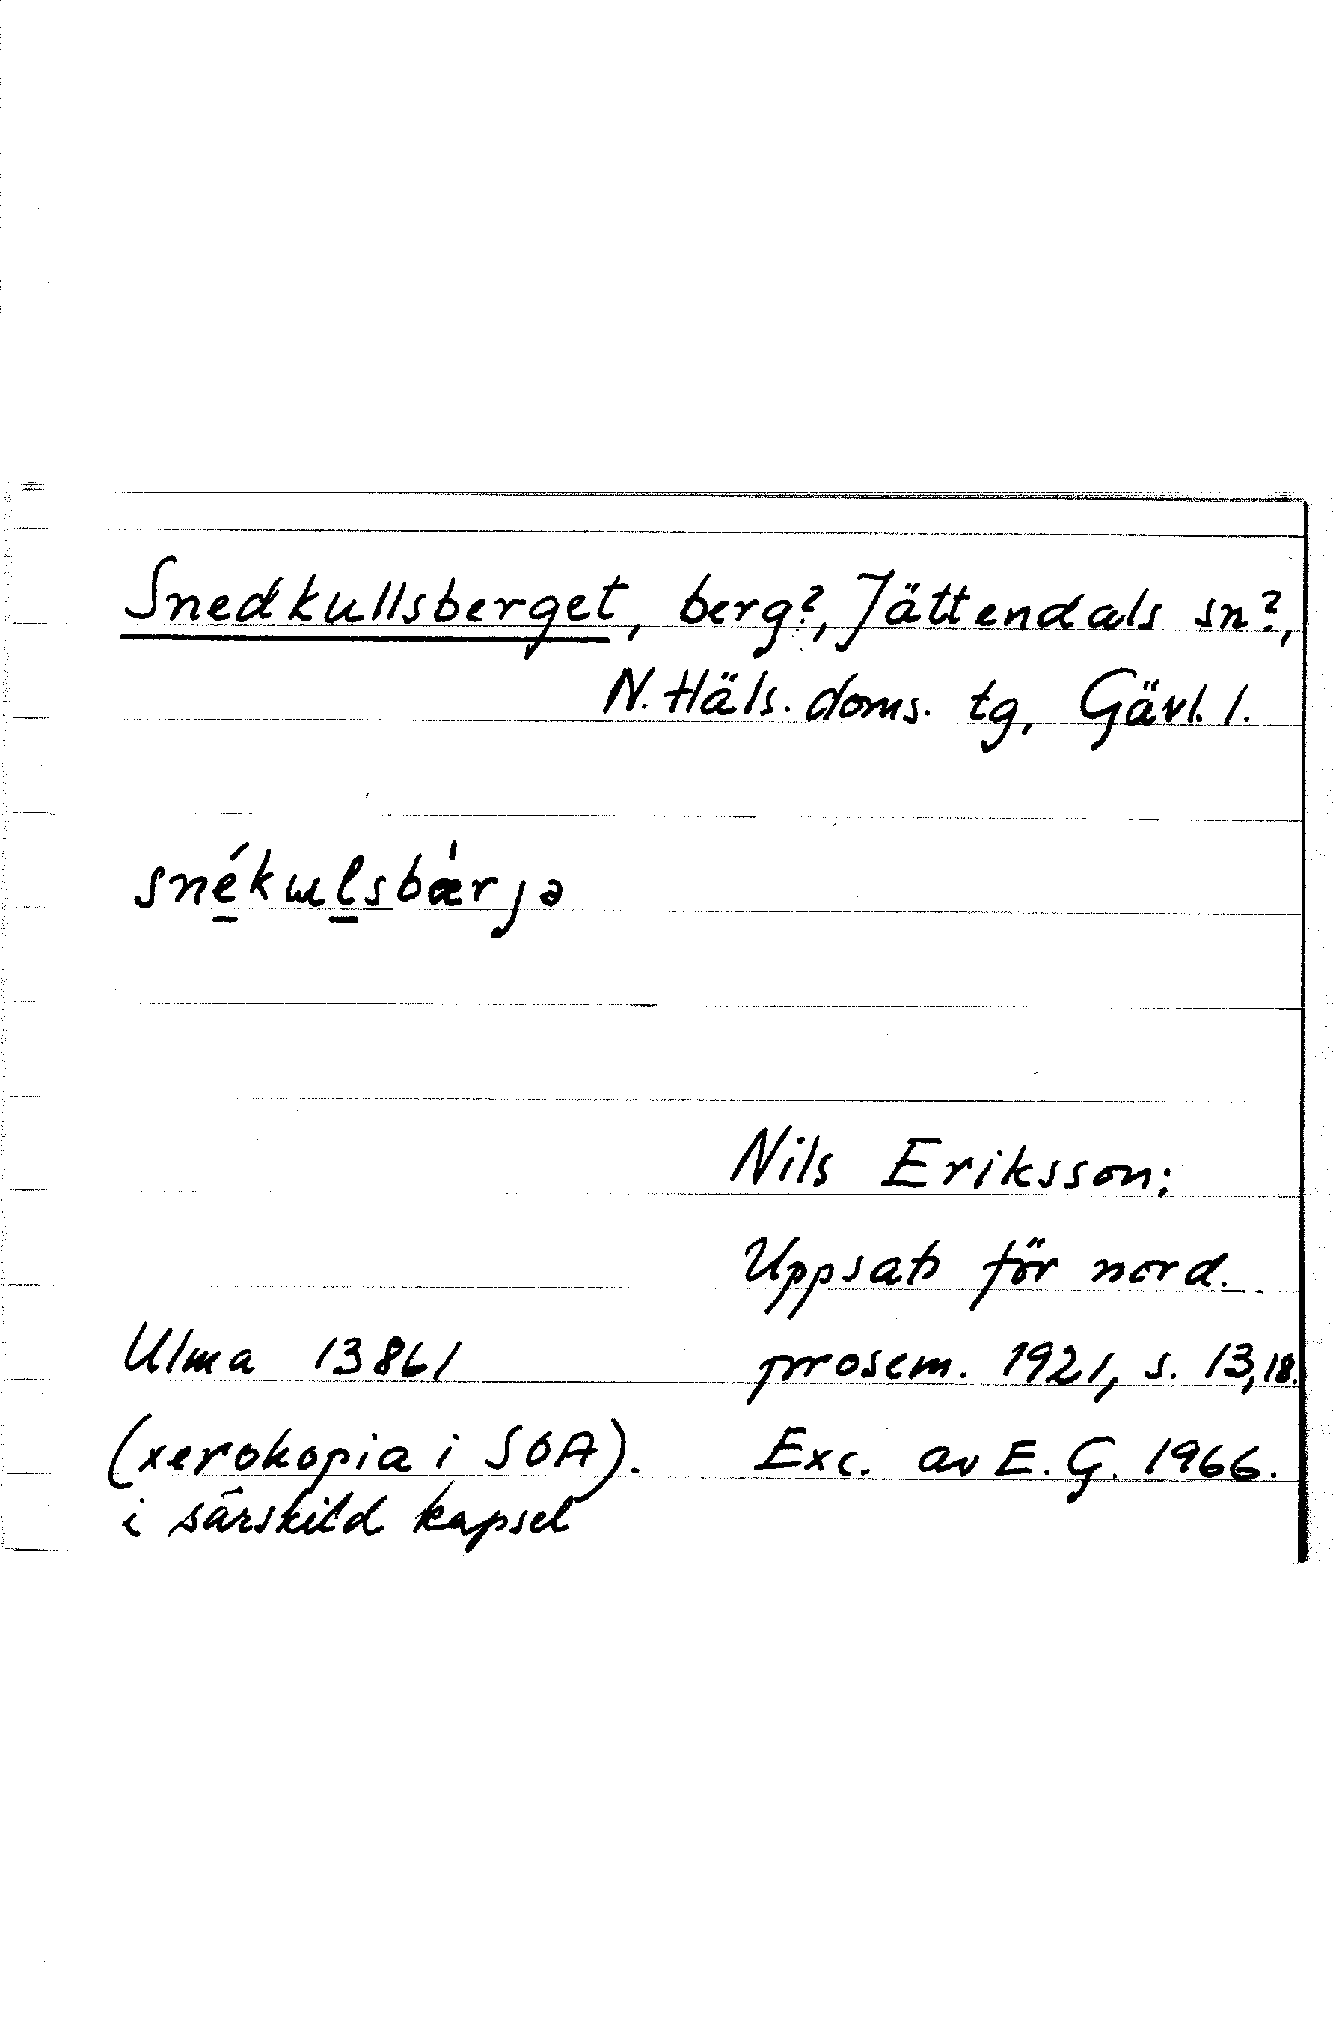 Snedkullsberget, berg?, Jättendals sn?,
N. Häls. doms. tg, Gävl. l.
snékulsbæ̀rjə
Nils Eriksson:
Uppsats för nord.
Ulma 13861 prosem. 1921, s. 13,18.
(xerokopia i SOA). Exc. av E. G. 1966.
i särskild kapsel